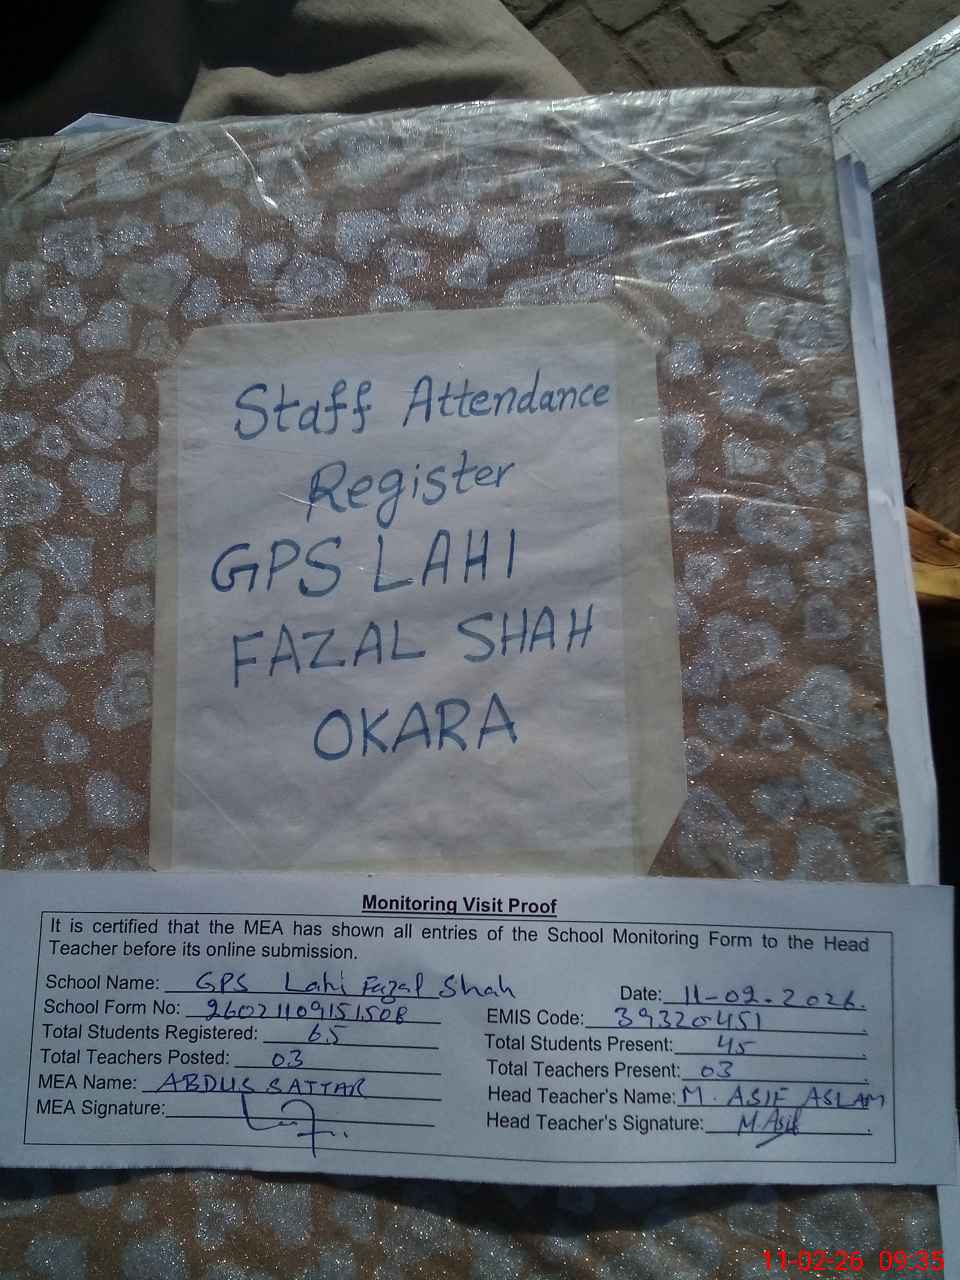 Staff Attendance
Register
GPS LAHI
FAZAL SHAH
OKARA
Monitoring Visit Proof
It is certified that the MEA has shown all entries of the School Monitoring Form to the Head
Teacher before its online submission.
School Name: GPS Lahi Fazal Shah
Date: 11-02-2026.
School Form No: 26021109151508
EMIS Code: 39320451
Total Students Registered: 65
Total Students Present: 45
Total Teachers Posted: 03
Total Teachers Present: 03
MEA Name: ABDUS SATTAR
Head Teacher's Name: M. ASIF ASLAM
MEA Signature:
Head Teacher's Signature: M.Asif
11-02-26 09:35